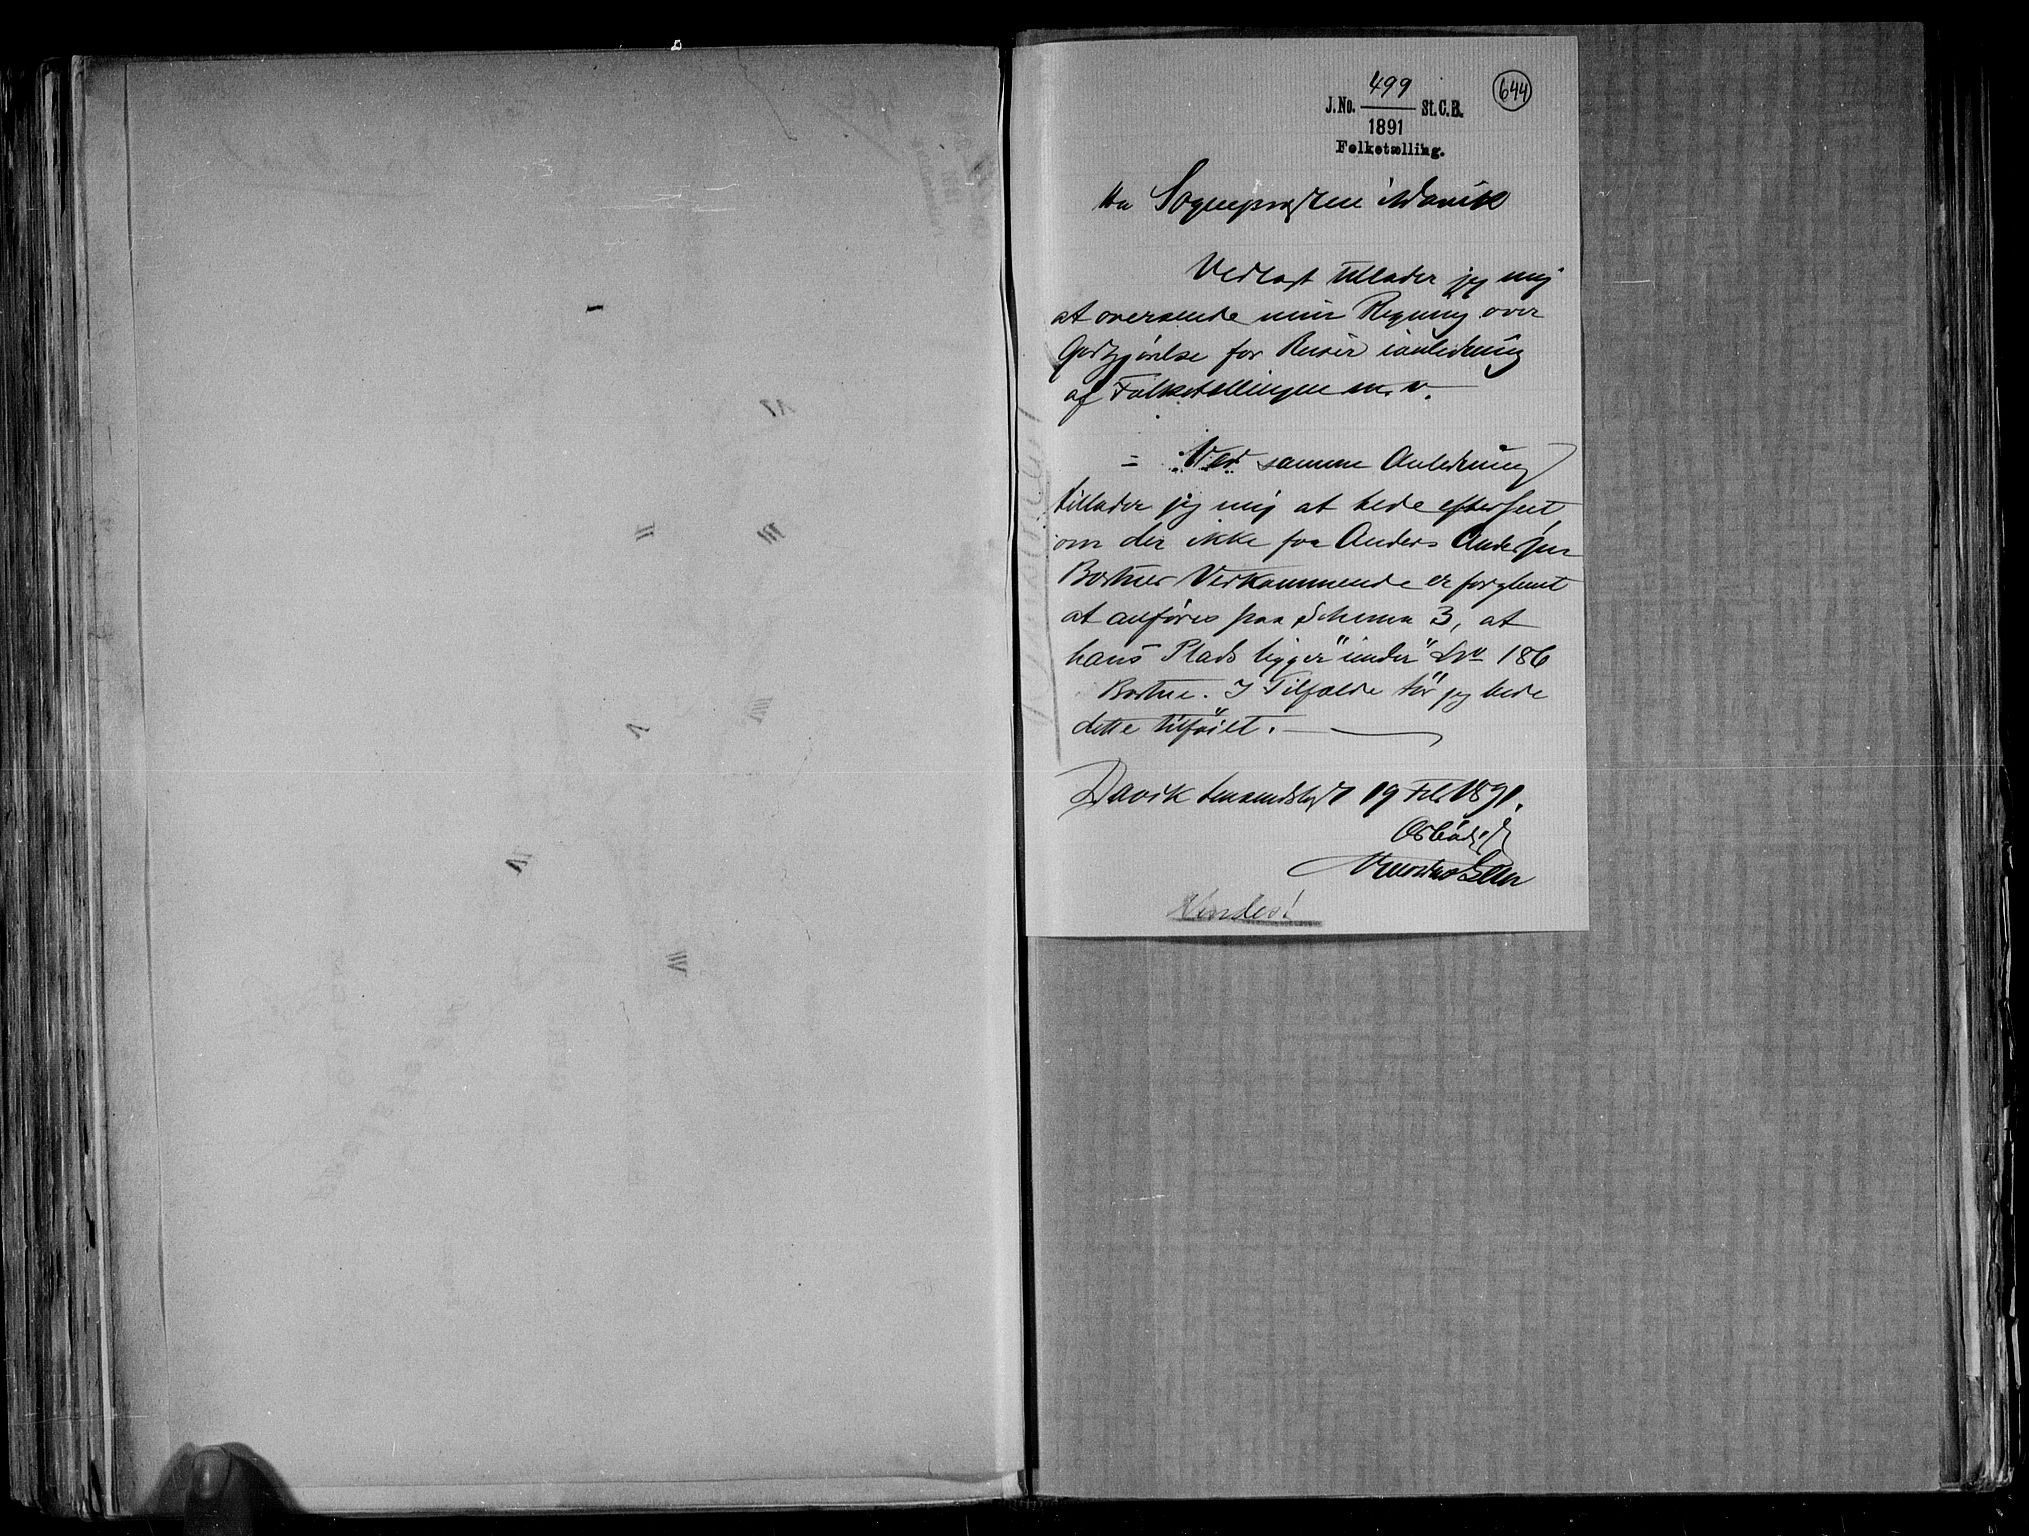 499
J.No. St.C.B.
1891
Folketælling.
644
Hr Sognepræsten i Davik
Vedlagt tillader jeg mig
at oversende min Regning over
Godtgjørelse for Reiser i anledning
af Folketællingen m. v.
= Ved samme Anledning
tillader jeg mig at bede efterseet
om der ikke for Anders Andersen
Bortnes Vedkommende er forglemt
at anføres paa Schema 3, at
hans Plads ligger "under" LNo 186
Bortne. I Tilfælde tør jeg bede
dette tilføiet.
Davik Lensmandsbest 19 Feb 1891.
Ærbødigst
II
III
V
VIII
IV
VII